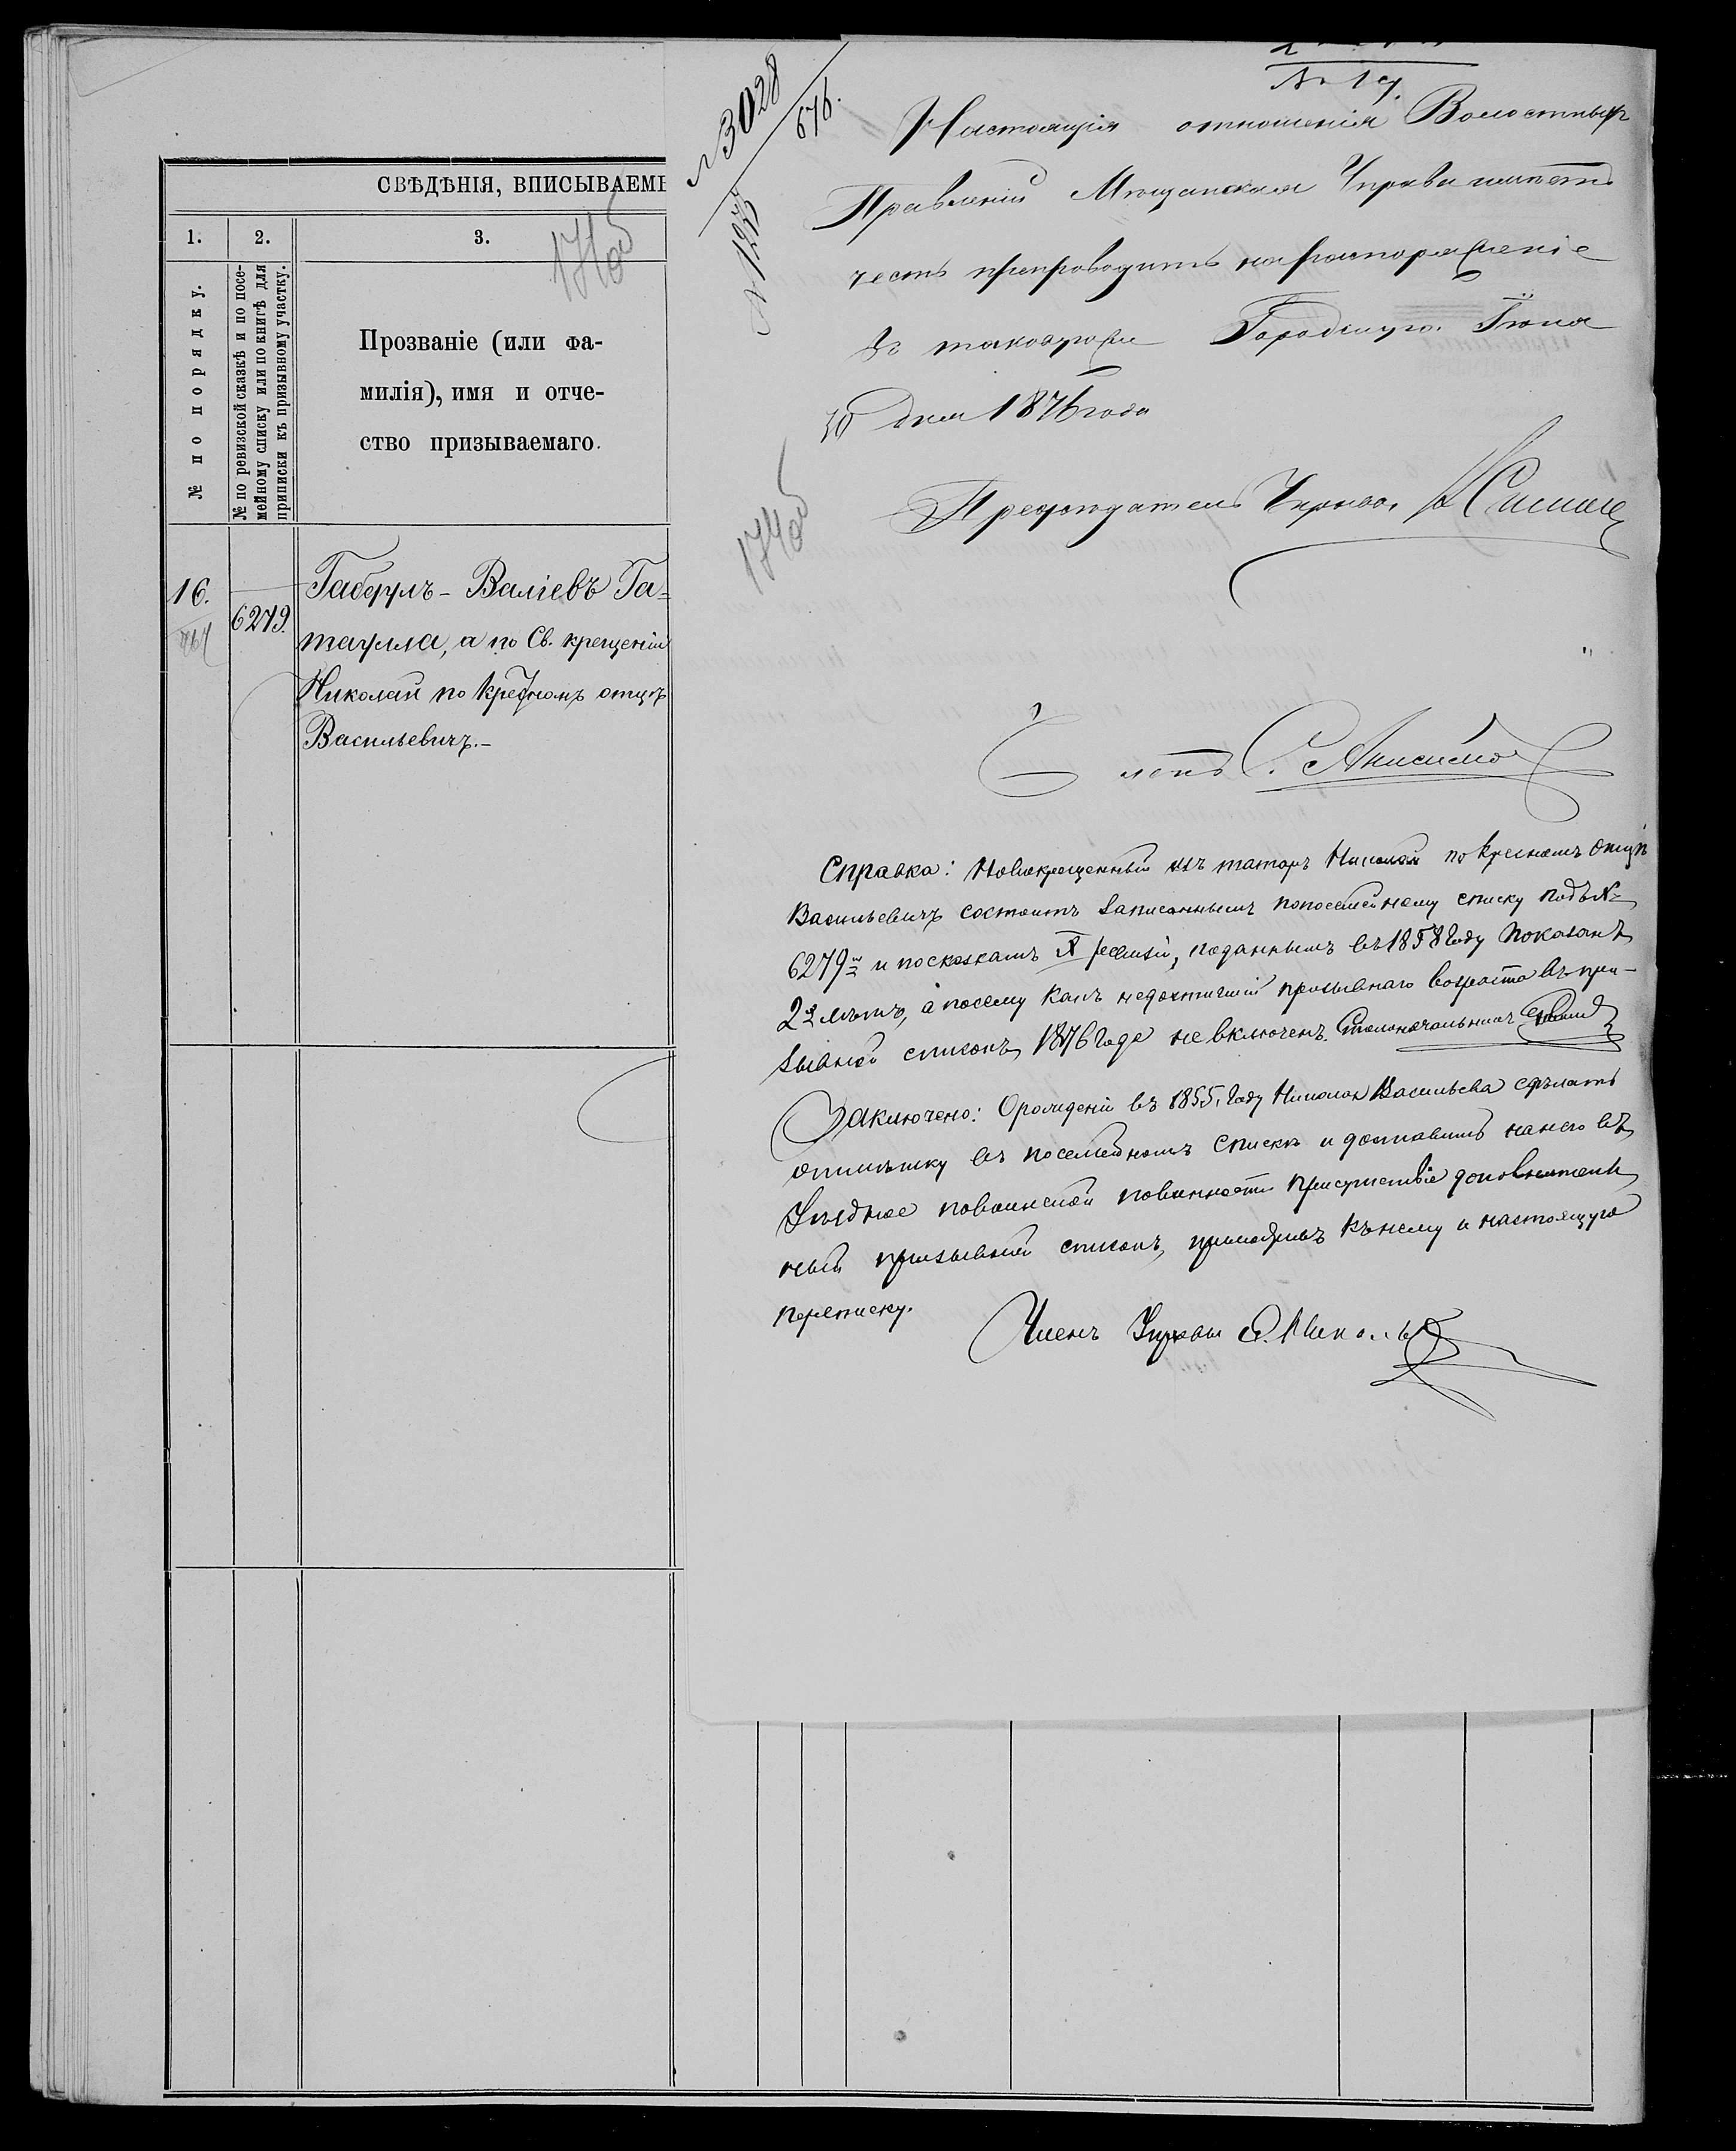 СВѢДѢНІЯ, ВПИСЫВАЕМЫ
1. 2. 3.
174об
№ по порядку.
№ по ревизской сказкѣ и по посе-
мейному списку или по книгѣ для
приписки къ призывному участку.
Прозваніе (или фа-
милія), имя и отче-
ство призываемаго.
16.
6279.
Габдулъ-Валіевъ Га=
таулла, а по Св. крещенію
Николай по крестномъ отцѣ
Васильевичъ.-
№ 3028
676.
№ 19.
Настоящія отношенія Волостныхъ
Правленій Мѣщанская Управа имѣетъ
честь препроводить на распоряженіе
въ таковую же Городскую. Іюня
30 дня 1876 года
174об
Предсѣдатель Управы
Членъ С. Анисимов
Справка: Новокрещенный изъ татаръ Николай по крестномъ отцѣ
Васильевичъ состоитъ записаннымъ по посемейному списку подъ №
6279м и по сказкамъ X ревизіи, поданнымъ въ 1858 году показанъ
2 лѣтъ, а посему какъ недостигшій призывнаго возраста въ при-
зывной списокъ 1876 года не включенъ. Столоначальникъ
Заключено: О рожденіи въ 1855 году Николая Васильева сдѣлать
отмѣтку въ посемейномъ спискѣ и доставить на него въ
Уѣздное по воинской повинности присутствіе дополнитель
ный призывной списокъ, приложивъ къ нему и настоящую
переписку.
Членъ Управы